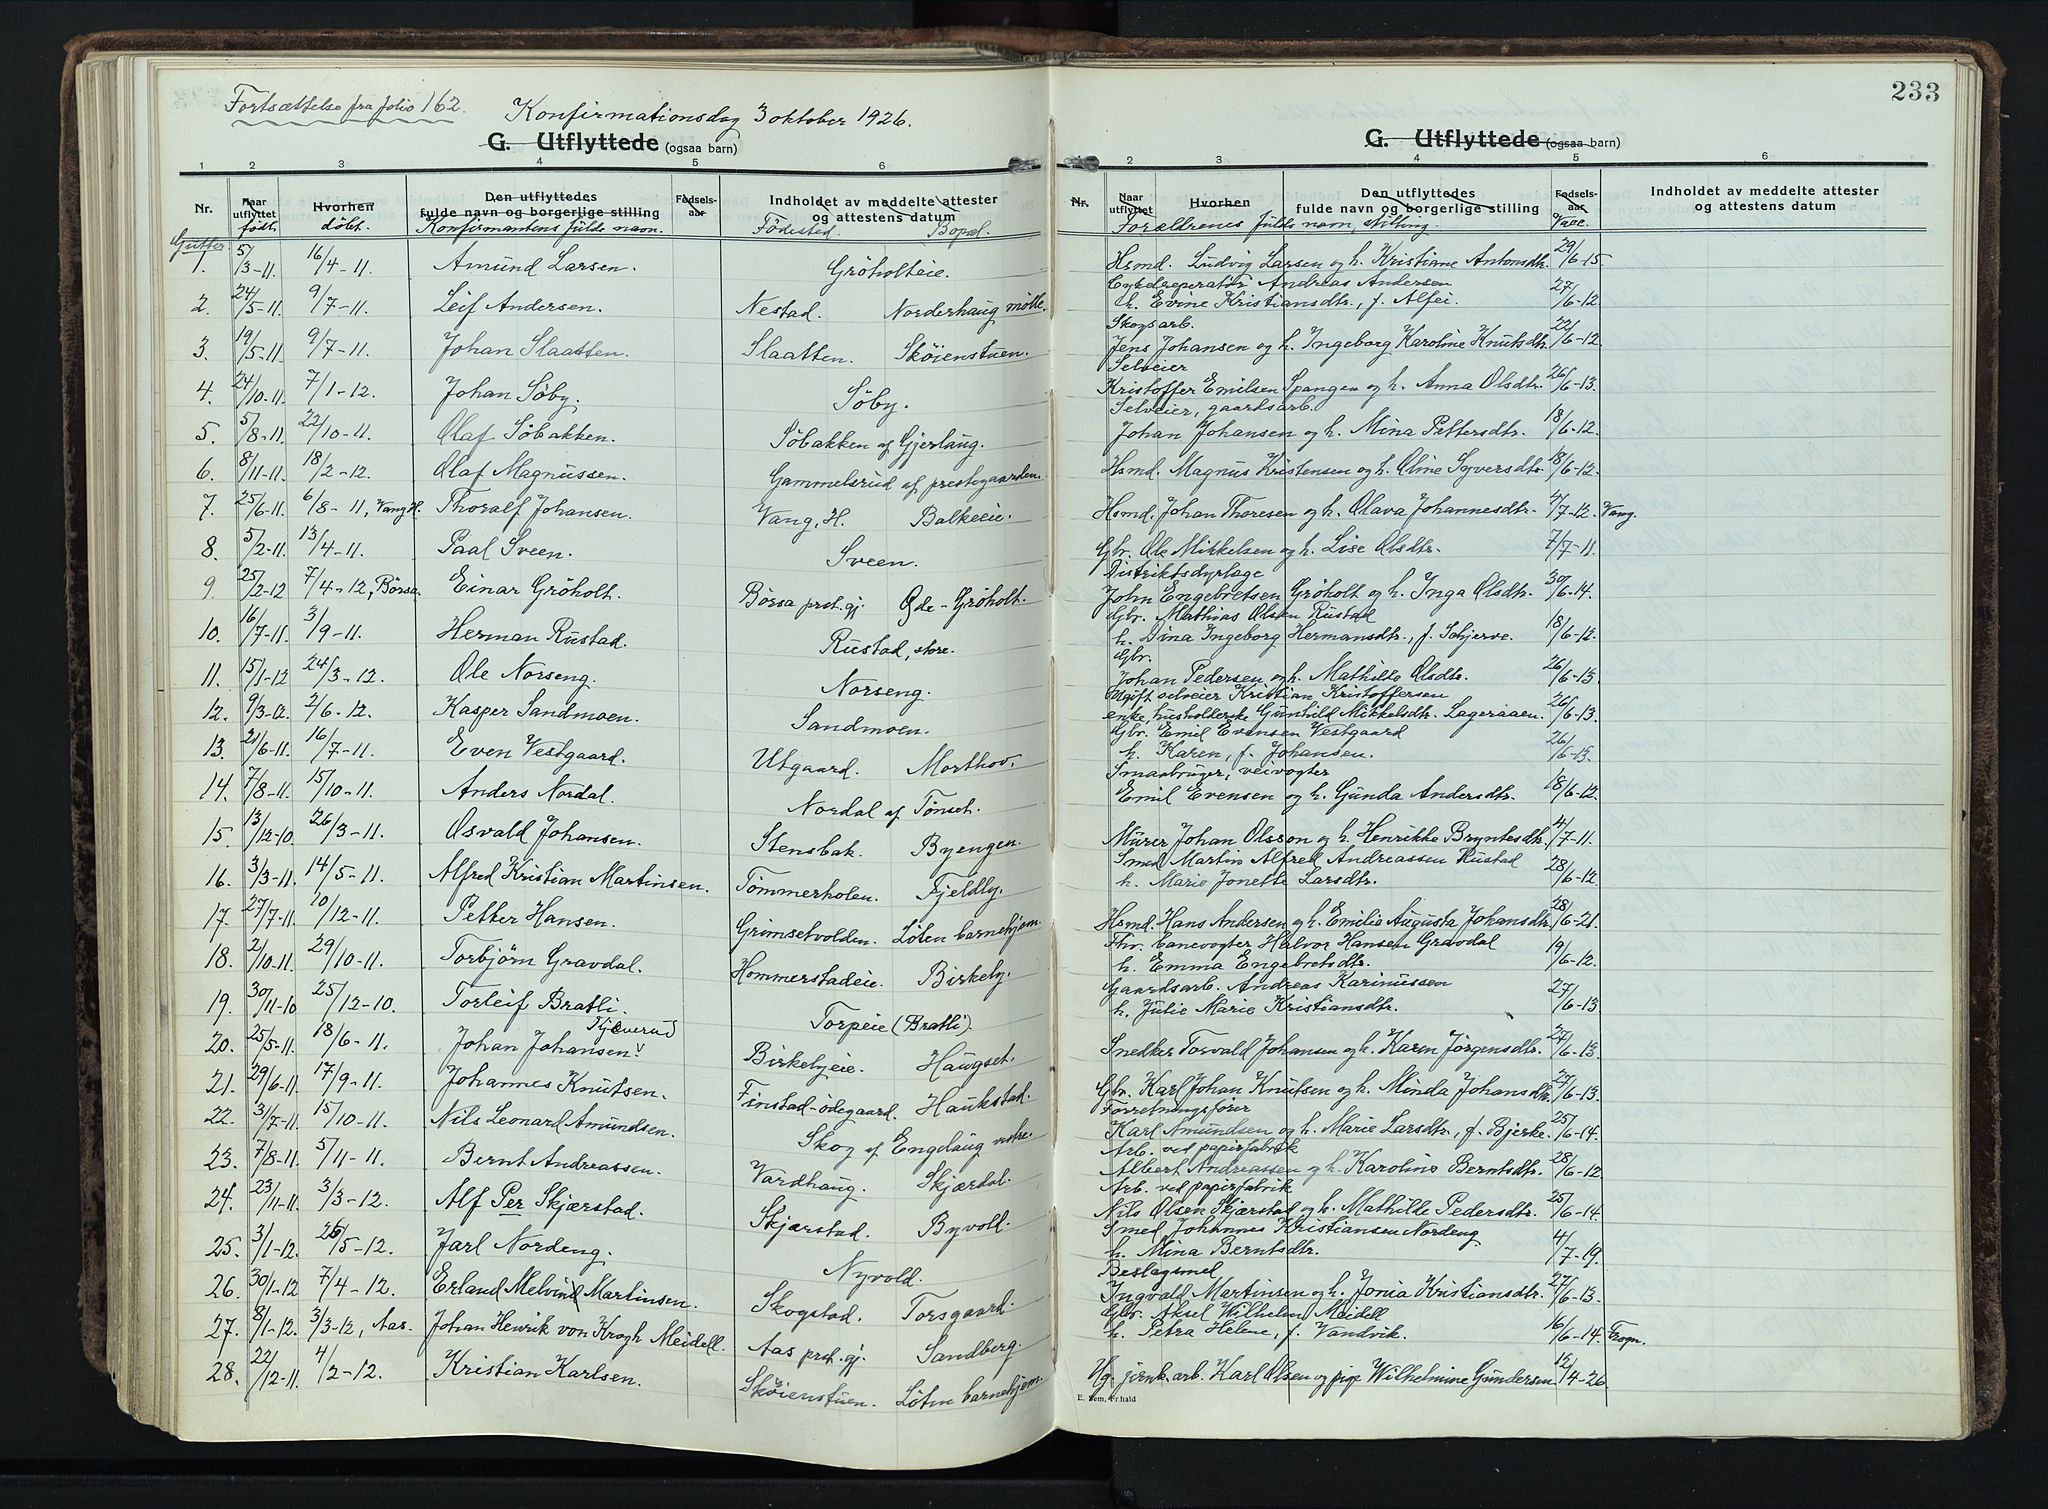 Fortsættelse fra folio 162. Konfirmationsdag 3 oktober 1926.
G. Utflyttede (ogsaa barn)
1 2 3 4 5 6
Nr. Naar utflyttet Hvorhen Den utflyttedes fulde navn og borgerlige stilling Fødsels-aar Indholdet av meddelte attester og attestens datum
født. døbt. Konfirmantens fulde navn. Fødested. Bopæl.
Gutter.
1. 5/3-11. 16/4-11. Amund Larsen. Gröholteie.
2. 24/5-11. 9/7-11. Leif Andersen. Nestad. Norderhaug mölle.
3. 19/5-11. 9/7-11. Johan Slaatten. Slaatten. Sköienstuen.
4. 24/10-11. 7/1-12. Johan Söby. Söby.
5. 5/8-11. 22/10-11. Olaf Söbakken. Söbakken af Gjerlaug.
6. 8/11-11. 18/2-12. Olaf Magnussen. Gammelsrud af prestegaarden.
7. 25/6-11. 6/8-11, Vang H. Thoralf Johansen. Vang, H. Balkeeie.
8. 5/2-11. 13/4-11. Paal Sveen. Sveen.
9. 25/2-12 7/4-12, Börsa. Einar Gröholt. Börsa prst. gj. Øde-Gröholt.
10. 16/7-11. 3/9-11. Herman Rustad. Rustad, store.
11. 15/1-12 24/3-12. Ole Norseng. Norseng.
12. 9/3-12. 2/6-12. Kasper Sandmoen. Sandmoen.
13. 21/6-11. 16/7-11. Even Vestgaard. Utgaard. Morthov.
14. 7/8-11. 15/10-11. Anders Nordal. Nordal af Tönset.
15. 13/12-10. 26/3-11. Osvald Johansen. Stensbak. Byengen.
16. 3/3-11. 14/5-11. Alfred Kristian Martinsen. Tömmerholen. Fjeldly.
17. 27/7-11. 10/12-11. Petter Hansen. Grimsetvolden. Löten barnehjem.
18. 2/10-11. 29/10-11. Torbjörn Gravdal. Hommerstadeie. Birkely.
19. 30/11-10 25/12-10. Torleif Bratli. Torpeie (Bratli).
20. 25/5-11. 18/6-11. Johan Johansen Tyverud. Birkebyeie. Haugset.
21. 29/6-11. 17/9-11. Johannes Knutsen. Finstad-ödegaard. Haukstad.
22. 31/7-11. 15/10-11. Nils Leonard Amundsen. Skog af Engelaug vestre.
23. 7/8-11. 5/11-11. Bernt Andreassen. Vardhaug. Skjærdal.
24. 23/11-11. 3/3-12. Alf Per Skjærstad. Skjærstad. Byvoll.
25. 3/1-12. 26/5-12. Jarl Nordeng. Nyvold.
26. 30/1-12 7/4-12. Erland Melvind Martinsen. Skogstad. Torsgaard.
27. 8/1-12. 3/3-12, Aas. Johan Henrik von Krogh Meidell. Aas prst. gj. Sandberg.
28. 22/12-11. 4/2-12. Kristian Karlsen. Sköienstuen. Löten barnehjem.
233
G. Utflyttede (ogsaa barn)
1 2 3 4 5 6
Nr. Naar utflyttet Hvorhen Den utflyttedes fulde navn og borgerlige stilling Fødsels-aar Indholdet av meddelte attester og attestens datum
Forældrenes fulde navn, stilling. Vacc.
Hsmd. Ludvig Larsen og h. Kristiane Antonsdtr. 29/6-15.
Cykelreperatör Andreas Andersen
h. Evine Kristiansdtr., f. Alfei. 27/6-12
Skogsarb.
Jens Johansen og h. Ingeborg Karoline Knutsdtr. 22/6-12.
Selveier
Kristoffer Emilsen Spangen og h. Anna Olsdtr. 26/6-13.
Selveier, gaardsarb.
Johan Johansen og h. Mina Pettersdtr. 18/6-12.
Hsmd. Magnus Kristensen og h. Oline Syversdtr. 18/6-12.
Hsmd. Johan Thoresen og h. Olava Johannesdtr. 4/7-12. Vang.
Gbr. Ole Mikkelsen og h. Lise Olsdtr. 7/7-11.
Distriktsdyrlæge
John Engebretsen Gröholt og h. Inga Olsdtr. 30/6-14.
Gbr. Mathias Olsen Rustad
h. Dina Ingeborg Hermansdtr., f. Schjerve. 18/6-12.
Gbr.
Johan Pedersen og h. Mathilde Olsdtr. 26/6-13.
Ugift selveier Kristian Kristoffersen
enke, husholderske Gunhild Mikkelsdtr. Lageraaen. 26/6-13.
Gbr. Emil Evensen Vestgaard
h. Karen, f. Johansen. 26/6-13.
Smaabruger, veivogter
Emil Evensen og h. Gunda Andersdtr. 18/6-12.
Murer Johan Olsson og h. Henrikke Bryntesdtr. 4/7-11.
Smed Martin Alfred Andreassen Rustad
h. Marie Jonette Larsdtr. 28/6-12.
Hsmd. Hans Andersen og h. Emilie Augusta Johansdtr. 28/6-21.
Fhv. banevogter Halvor Hansen Gravdal
h. Emma Engebretsdtr. 19/6-12.
Gaardsarb. Andreas Karinussen
h. Julie Marie Kristiansdtr. 27/6-13.
Snedker Torvald Johansen og h. Karen Jörgensdtr. 27/6-13.
Gbr. Karl Johan Knutsen og h. Minda Johansdtr. 27/6-13.
Forretningsförer
Karl Amundsen og h. Marie Larsdtr., f. Bjerke. 25/6-14.
Arb. ved papirfabrik
Albert Andreassen og h. Karoline Berntsdtr. 28/6-12
Arb. ved papirfabrik
Nils Olsen Skjærstad og h. Mathilde Pedersdtr. 25/6-14.
Smed Johannes Kristiansen Nordeng
h. Mina Berntsdtr. 4/7-19.
Beslagsmed
Ingvald Martinsen og h. Jonia Kristiansdtr. 27/6-13.
Gbr. Aksel Wilhelm Meidell
h. Petra Helene, f. Vandvik. 16/6-14. Frogn.
Ug. jernb. arb. Karl Olsen og pige Wilhelmine Gundersen 12/4-26
E. Sem, Fr.hald